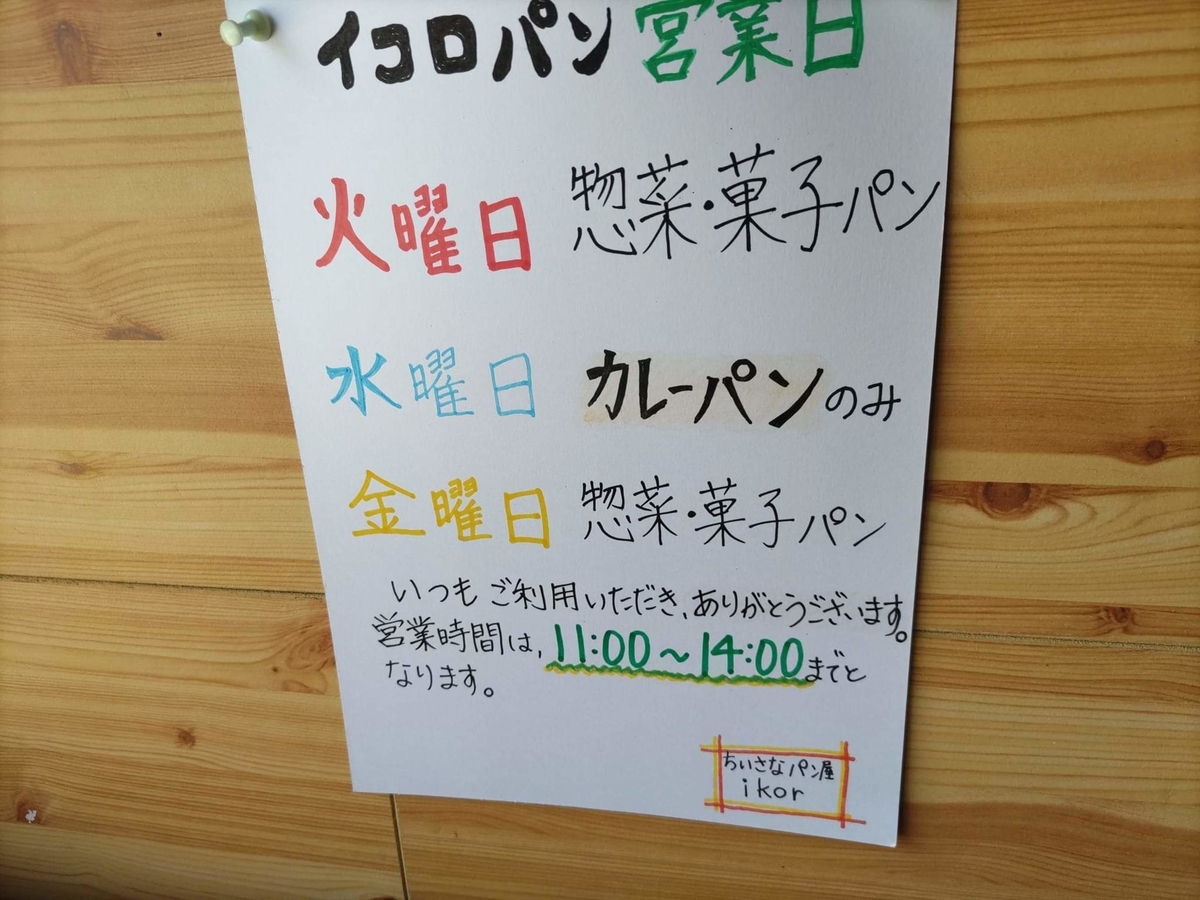 イコロパン営業日
火曜日 惣菜・菓子パン
水曜日 カレーパンのみ
金曜日 惣菜・菓子パン
いつもご利用いただき、ありがとうございます。
営業時間は、11:00～14:00までと
なります。
ちいさなパン屋
ikor